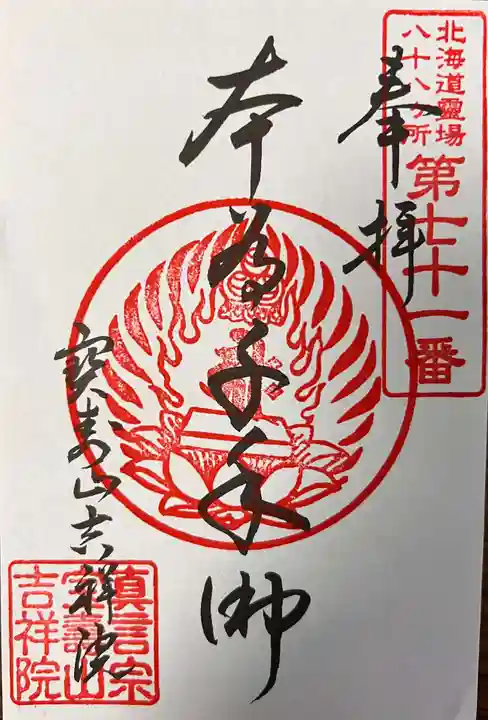 北海道靈場
八十八ヶ所
第七十一番
奉拝
本尊千手御
寳寿山吉祥院
真言宗
宝壽山
吉祥院